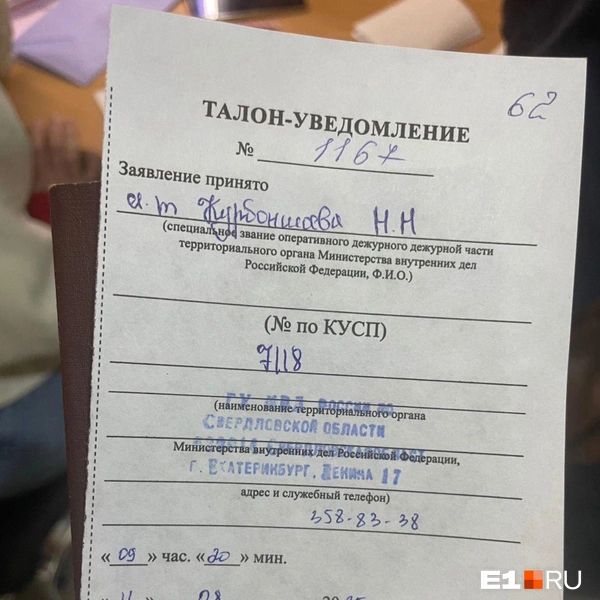 62
ТАЛОН-УВЕДОМЛЕНИЕ
№ 1167
Заявление принято
Н.Н
(специальное звание оперативного дежурного дежурной части
территориального органа Министерства внутренних дел
Российской Федерации, Ф.И.О.)
(№ по КУСП)
7118
ГУ МВД РОССИИ ПО
(наименование территориального органа
СВЕРДЛОВСКОЙ ОБЛАСТИ
Министерства внутренних дел Российской Федерации,
Г. ЕКАТЕРИНБУРГ, ЛЕНИНА 17
адрес и служебный телефон)
358-83-38
« 09 » час. « 20 » мин.
E1.RU